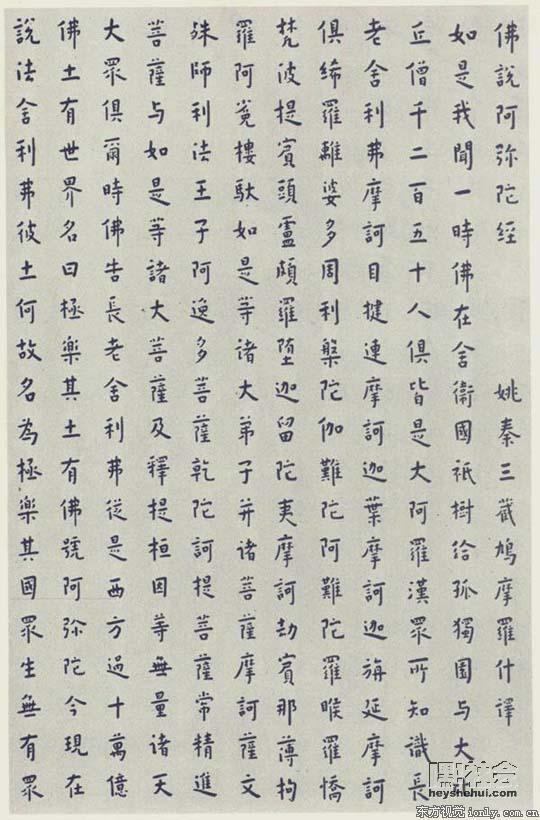 佛說阿弥陀經 姚秦三藏鳩摩羅什譯
如是我聞一時佛在舍衞國祇樹給孤獨園与大比
丘僧千二百五十人俱皆是大阿羅漢眾所知識長
老舍利弗摩訶目揵連摩訶迦葉摩訶迦旃延摩訶
俱絺羅離婆多周利槃陀伽難陀阿難陀羅睺羅憍
梵波提賓頭盧頗羅堕迦留陀夷摩訶劫賓那薄拘
羅阿㝹樓馱如是等诸大弟子并诸菩薩摩訶薩文
殊師利法王子阿逸多菩薩乾陀訶提菩薩常精進
菩薩与如是等諸大菩薩及釋提桓因等無量諸天
大眾俱爾時佛告長老舍利弗從是西方過十萬億
佛土有世界名曰極樂其土有佛號阿弥陀今現在
說法舍利弗彼土何故名為極樂其國眾生無有眾
heyshehui.com
东方视觉 ionly.com.cn